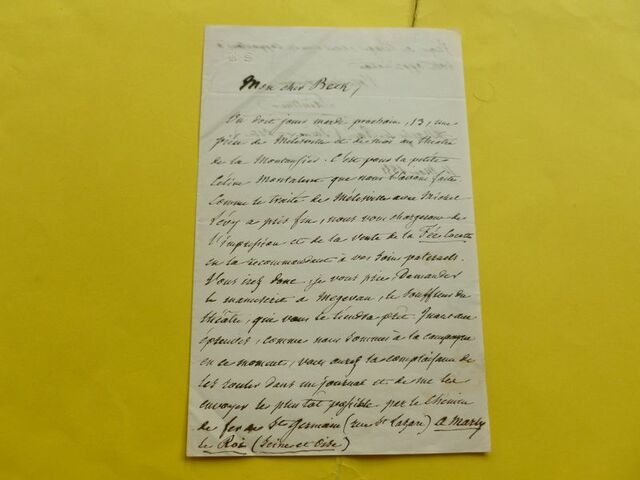 Mon cher Beck,
On doit jouer mardi prochain, 13, une
pièce de Mélesville et de moi au théâtre
de la Montansier. C'est pour la petite
Céline Montaland que nous l'avons faite
Comme le traité de Mélesville avec Michel
Lévy a pris fin, nous vous chargerons de
l'impression et de la vente de la Fée Cocotte
en la recommandant à vos soins paternels.
Vous irez donc, je vous prie, demander
le manuscrit à Megevan, le Souffleur du
théâtre, qui vous le tiendra prêt. Quant aux
épreuves, comme nous sommes à la campagne
en ce moment, vous aurez la complaisance de
les rouler dans un journal et de me les
envoyer le plutôt possible par le Chemin
de fer de St Germain (rue St Lazare) à Marly
le Roi (Seine et Oise)